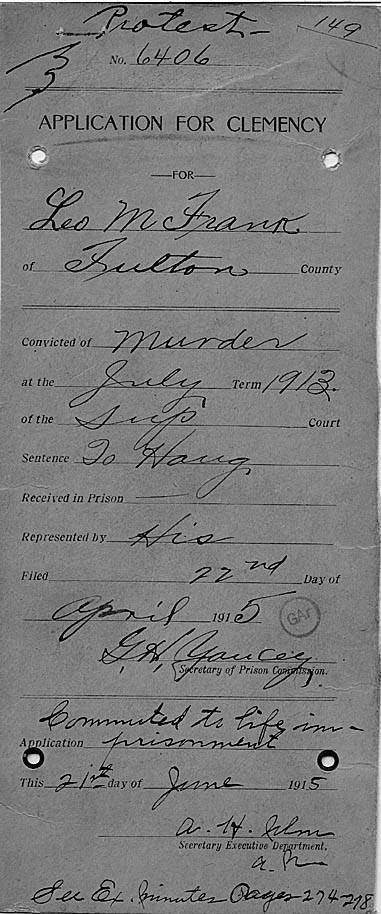 Protest
149
No. 6406
APPLICATION FOR CLEMENCY
—FOR—
Leo M Frank
of Fulton County
Convicted of Murder
at the July Term 1913.
of the Sup Court
Sentence To Hang
Received in Prison —
Represented by His
Filed 22nd Day of
April 1915
GAr
G.H. Yancey,
Secretary of Prison Commission.
Commuted to life im-
Application prisonment
This 21st day of June 1915
a. H.
Secretary Executive Department.
See Ex. minutes Pages 274-278